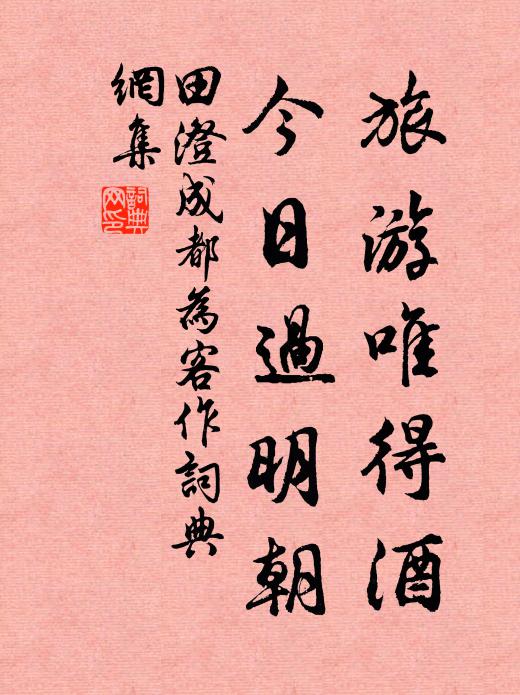 旅游唯得酒
今日過明朝
田澄成都為客作詞典
網集
詞典
网印